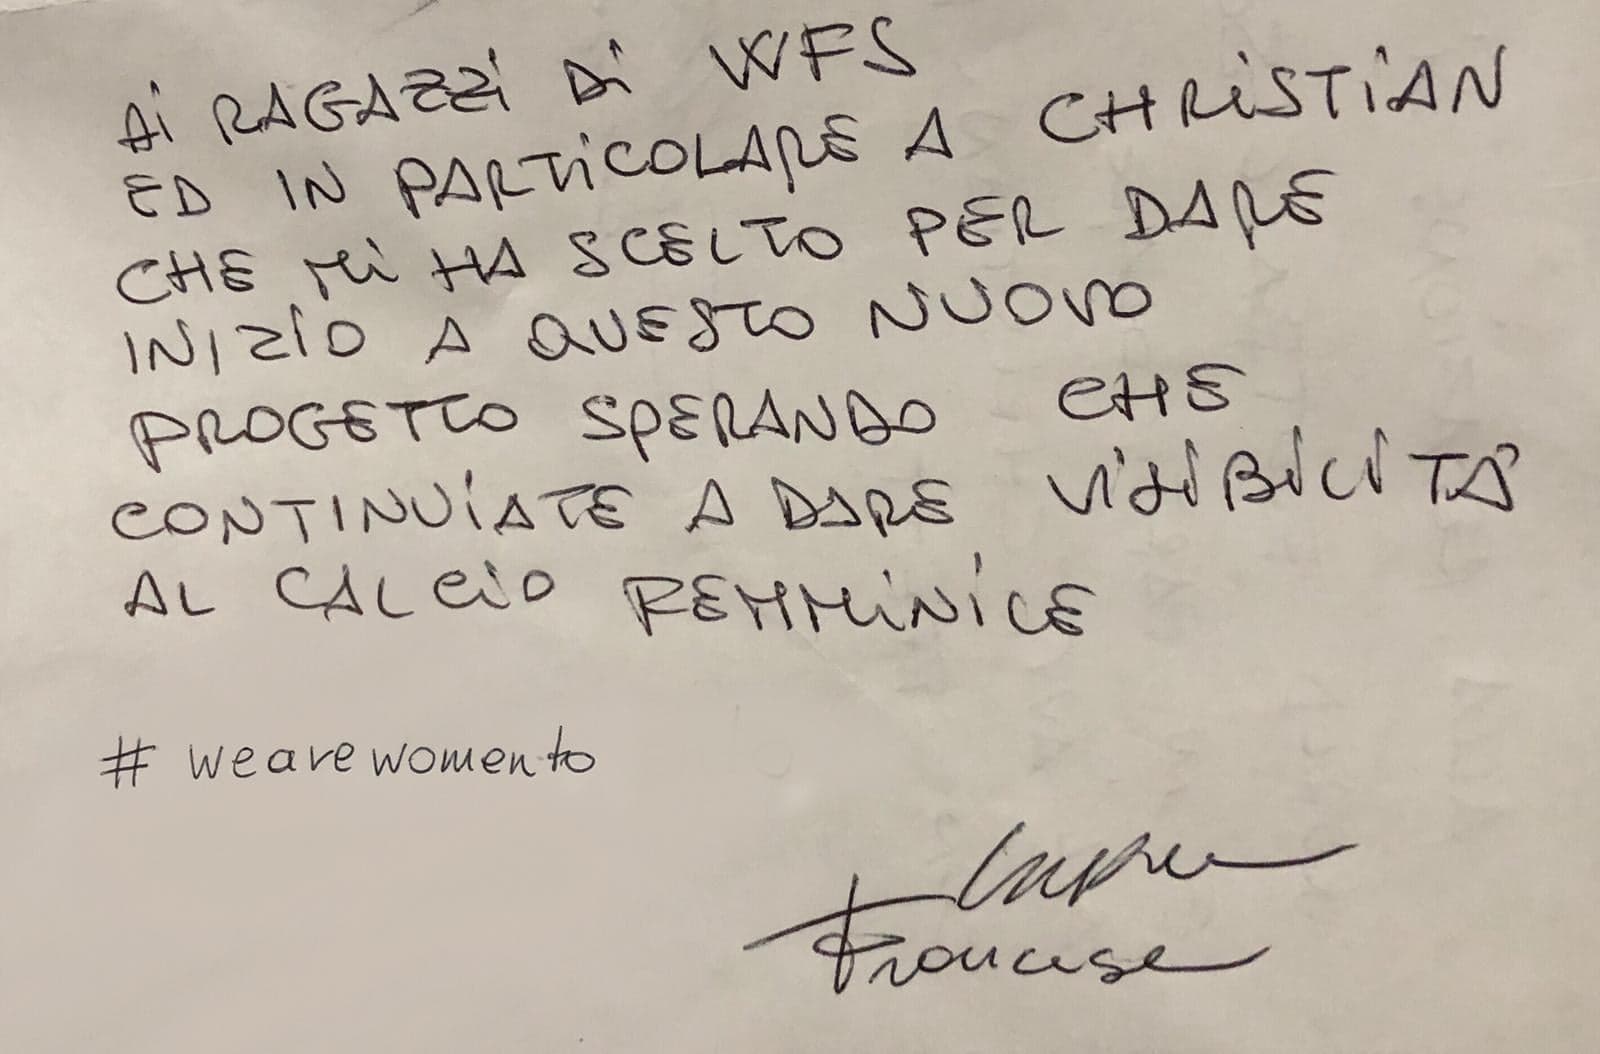 Ai RAGAZZi Di WFS
ED IN PARTiCOLARE A CHRiSTiAN
CHE Mi HA SCELTO PER DARE
INIZiO A QUESTO NUOVO
PROGETTO SPERANDO CHE
CONTINUiATE A DARE ViSiBiLiTÀ
AL CALCiO FEMMiNiLE
# wearewomento
Francese